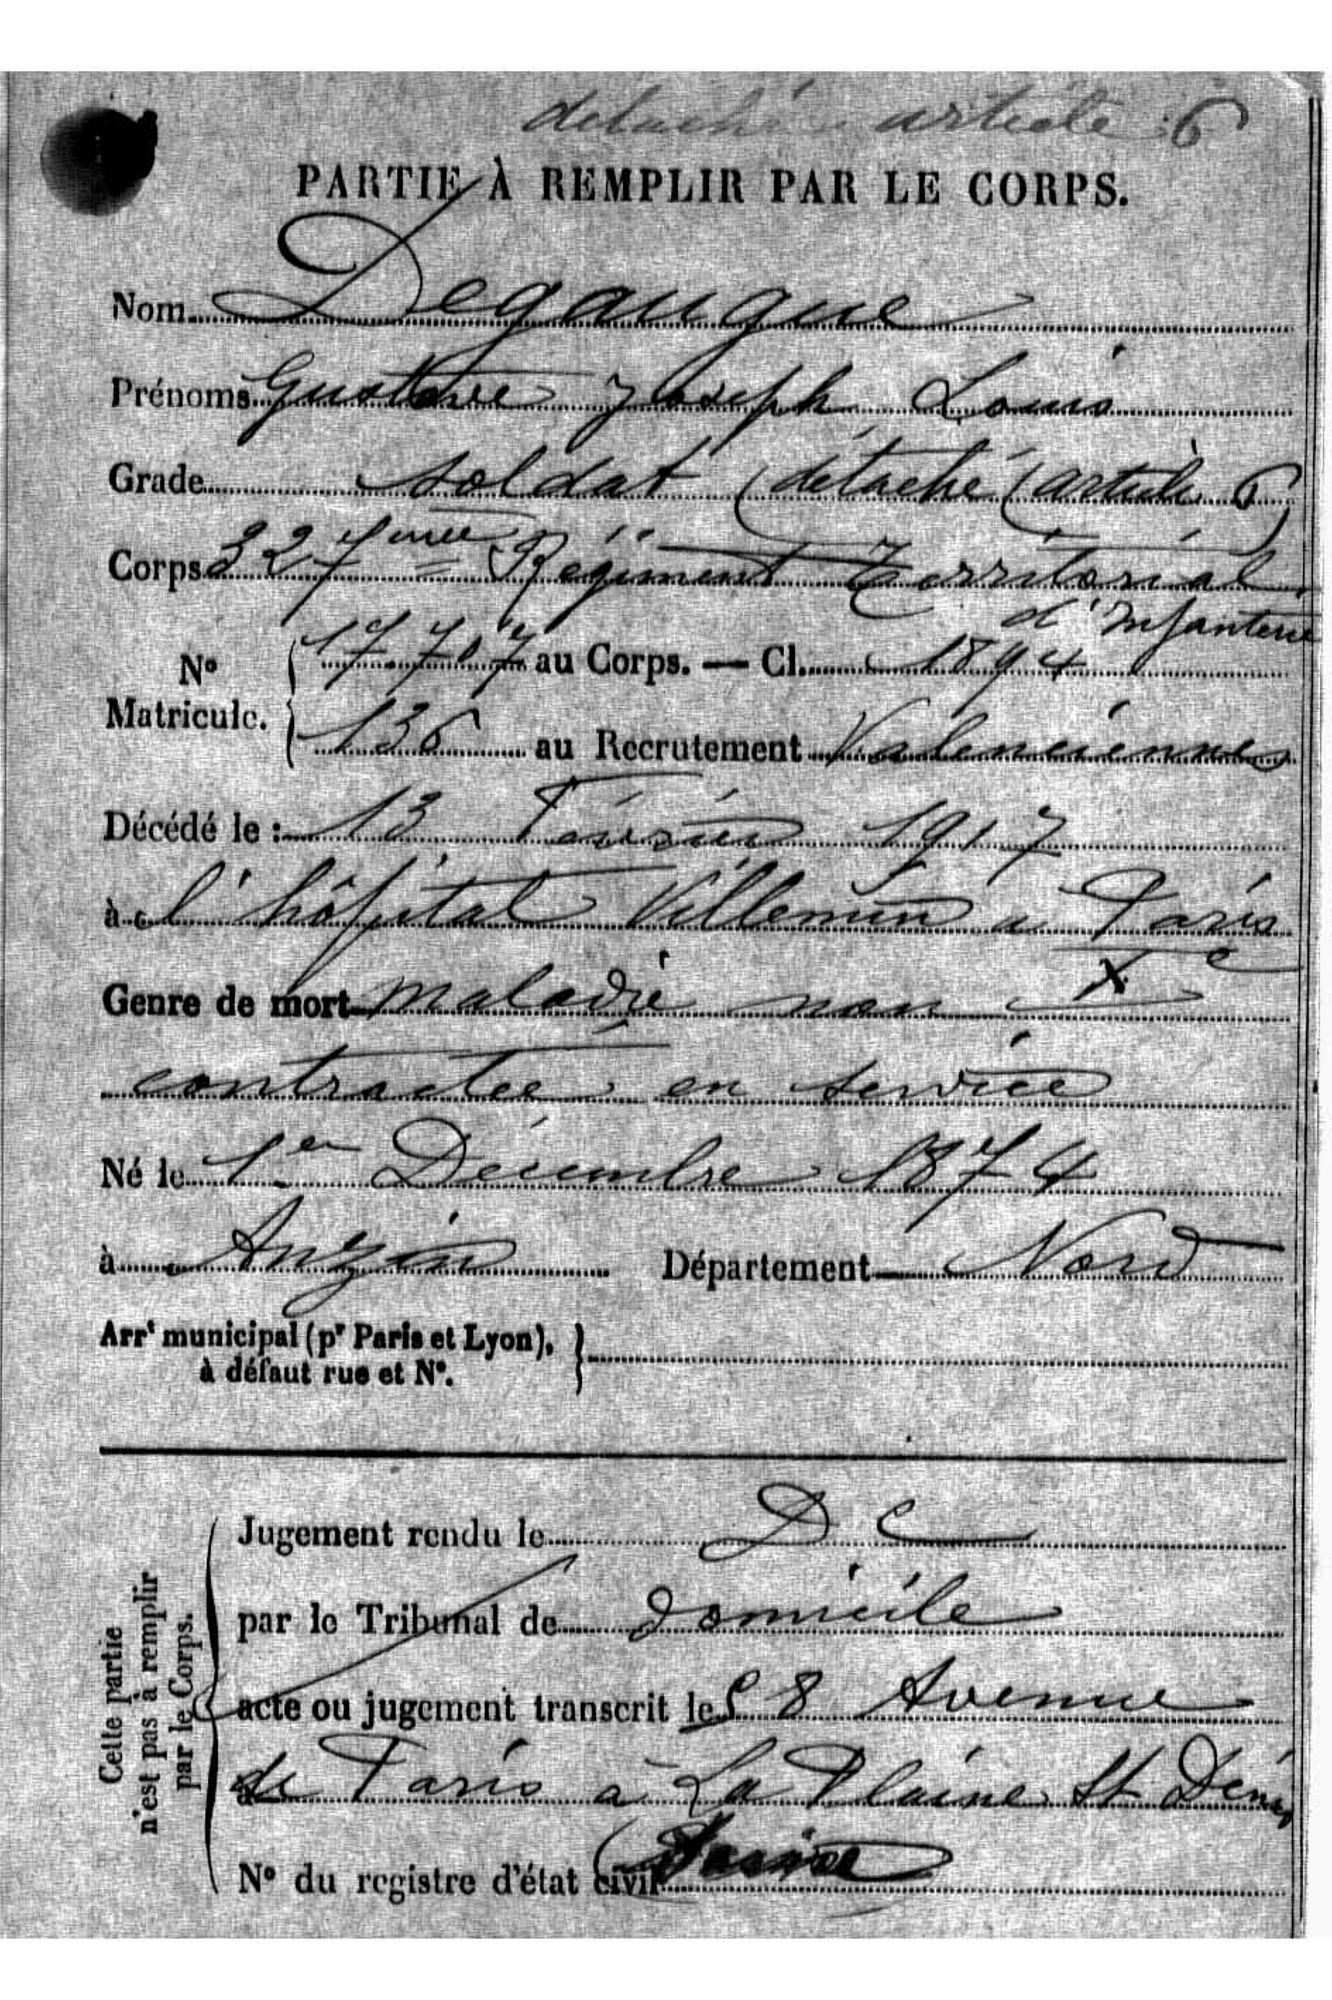 détaché article 6
PARTIE À REMPLIR PAR LE CORPS.
Nom Degaugue
Prénoms Gustave Joseph Louis
Grade soldat (détaché (article 6)
Corps 327ème Régiment Territorial
d'Infanterie
Nº Matricule. { 17.707 au Corps. — Cl. 1894
136 au Recrutement Valenciennes
Décédé le : 13 Février 1917
à l'hôpital Villemin à Paris
Xe
Genre de mort maladie non
contractée en service
Né le 1er Décembre 1874
à Anzin Département Nord
Arrt municipal (pr Paris et Lyon), }
à défaut rue et Nº.
Cette partie
n'est pas à remplir
par le Corps.
Jugement rendu le Dé
par le Tribunal de domicile
acte ou jugement transcrit le 58 Avenue
à de Paris à La Plaine St Denis
Nº du registre d'état civil (Seine)